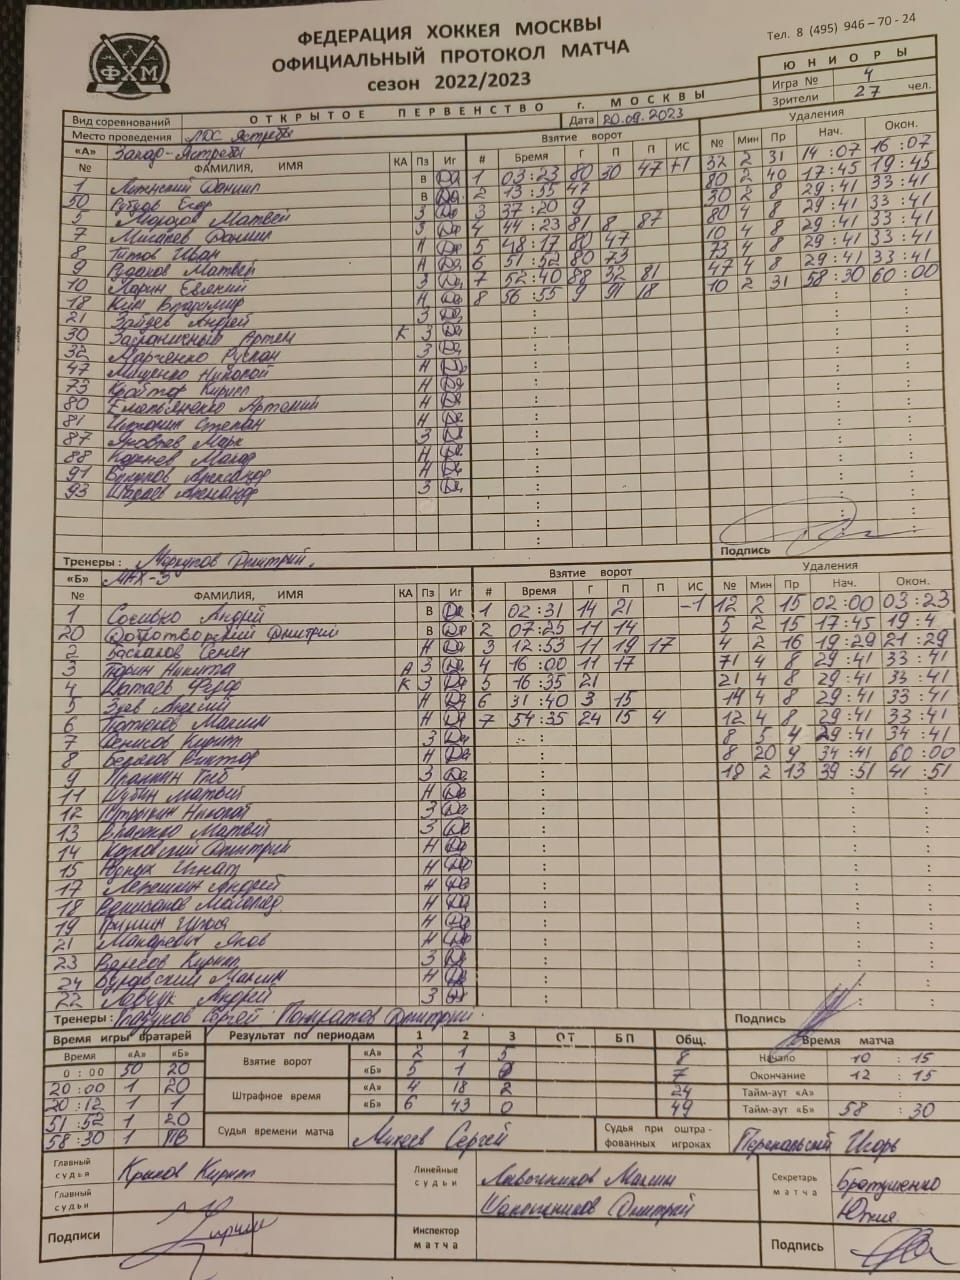 ФЕДЕРАЦИЯ ХОККЕЯ МОСКВЫ
Тел. 8 (495) 946-70-24
ОФИЦИАЛЬНЫЙ ПРОТОКОЛ МАТЧА
ФХМ
сезон 2022/2023
ЮНИОРЫ
Игра № 4
Зрители 27 чел.
Вид соревнований ОТКРЫТОЕ ПЕРВЕНСТВО г. МОСКВЫ
Место проведения ЛДС Ястребы Дата 20.09.2023
«А» Взятие ворот Удаления
№ ФАМИЛИЯ, ИМЯ КА Пз Иг # Время Г П П ИС № Мин Пр Нач. Окон.
1 Даниил В Да 1 03:23 80 30 47 +1 32 2 31 14:07 16:07
50 Егор В Да 2 13:55 47 80 2 40 17:45 19:45
5 Морозов Матвей З Да 3 37:20 9 30 2 8 29:41 33:41
7 Даниил З Да 4 44:23 81 8 87 80 4 8 29:41 33:41
8 Титов Иван Н Да 5 48:17 80 47 10 4 8 29:41 33:41
9 Рудаков Матвей Н Да 6 51:52 80 73 73 4 8 29:41 33:41
10 Ларин Евгений З Да 7 52:40 88 32 81 47 4 8 29:41 33:41
18 Ким Владимир Н Да 8 56:55 9 91 18 10 2 31 58:30 60:00
21 Зайцев Андрей З Да
30 Заграничный Артем К З Да
32 Марченко Руслан З Да
47 Мищенко Николай Н Да
73 Кройтор Кирилл Н Да
80 Емельяненко Артемий Н Да
81 Степан Н Да
87 Яковлев Марк З Да
88 Н Да
91 Александр Н Да
93 Александр З Да
Тренеры: Меркулов Дмитрий. Подпись
«Б» МАХ-3 Взятие ворот Удаления
№ ФАМИЛИЯ, ИМЯ КА Пз Иг # Время Г П П ИС № Мин Пр Нач. Окон.
1 Андрей В Да 1 02:31 14 21 -1 12 2 15 02:00 03:23
20 Дмитрий В Да 2 07:25 11 14 5 2 15 17:45 19:4
2 Баскаков Семен Н Да 3 12:53 11 19 17 4 2 16 19:29 21:29
3 Тюрин Никита А З Да 4 16:00 11 17 71 4 8 29:41 33:41
4 Шатаев К З Да 5 16:35 21 21 4 8 29:41 33:41
5 Зуев Алексей Н Да 6 31:40 3 15 14 4 8 29:41 33:41
6 Максим Н Да 7 54:35 24 15 4 12 4 8 29:41 33:41
7 Денисов Кирилл З Да 8 5 4 29:41 34:41
8 Виктор Н Да 8 20 9 34:41 60:00
9 Глеб З Да 18 2 13 39:51 41:51
11 Шубин Матвей Н Да
12 Николай З Да
13 Власенко Матвей З Да
14 Козловский Дмитрий Н Да
15 Игнат Н Да
17 Лепешкин Андрей Н Да
18 Н Да
19 Гришин Илья Н Да
21 Макаревич Яков Н Да
23 Кирилл З Да
24 Максим Н Да
22 Андрей З Да
Тренеры: Сергей Дмитрий. Подпись
Время игры вратарей Результат по периодам 1 2 3 ОТ БП Общ. Время матча
Время «А» «Б» Взятие ворот «А» 2 1 5 8 Начало 10:15
0:00 50 20 «Б» 5 1 7 Окончание 12:15
20:00 1 20 Штрафное время «А» 4 18 2 24 Тайм-аут «А» :
20:12 1 1 «Б» 6 43 0 49 Тайм-аут «Б» 58:30
51:52 1 20
58:30 1 ПВ Судья времени матча Михеев Сергей Судья при оштрафованных игроках Игорь
Главный судья Крюков Кирилл Линейные судьи Лавочников Максим Секретарь матча Братушенко
Главный судья Шапошников Дмитрий Юлия
Подписи Инспектор матча Подпись